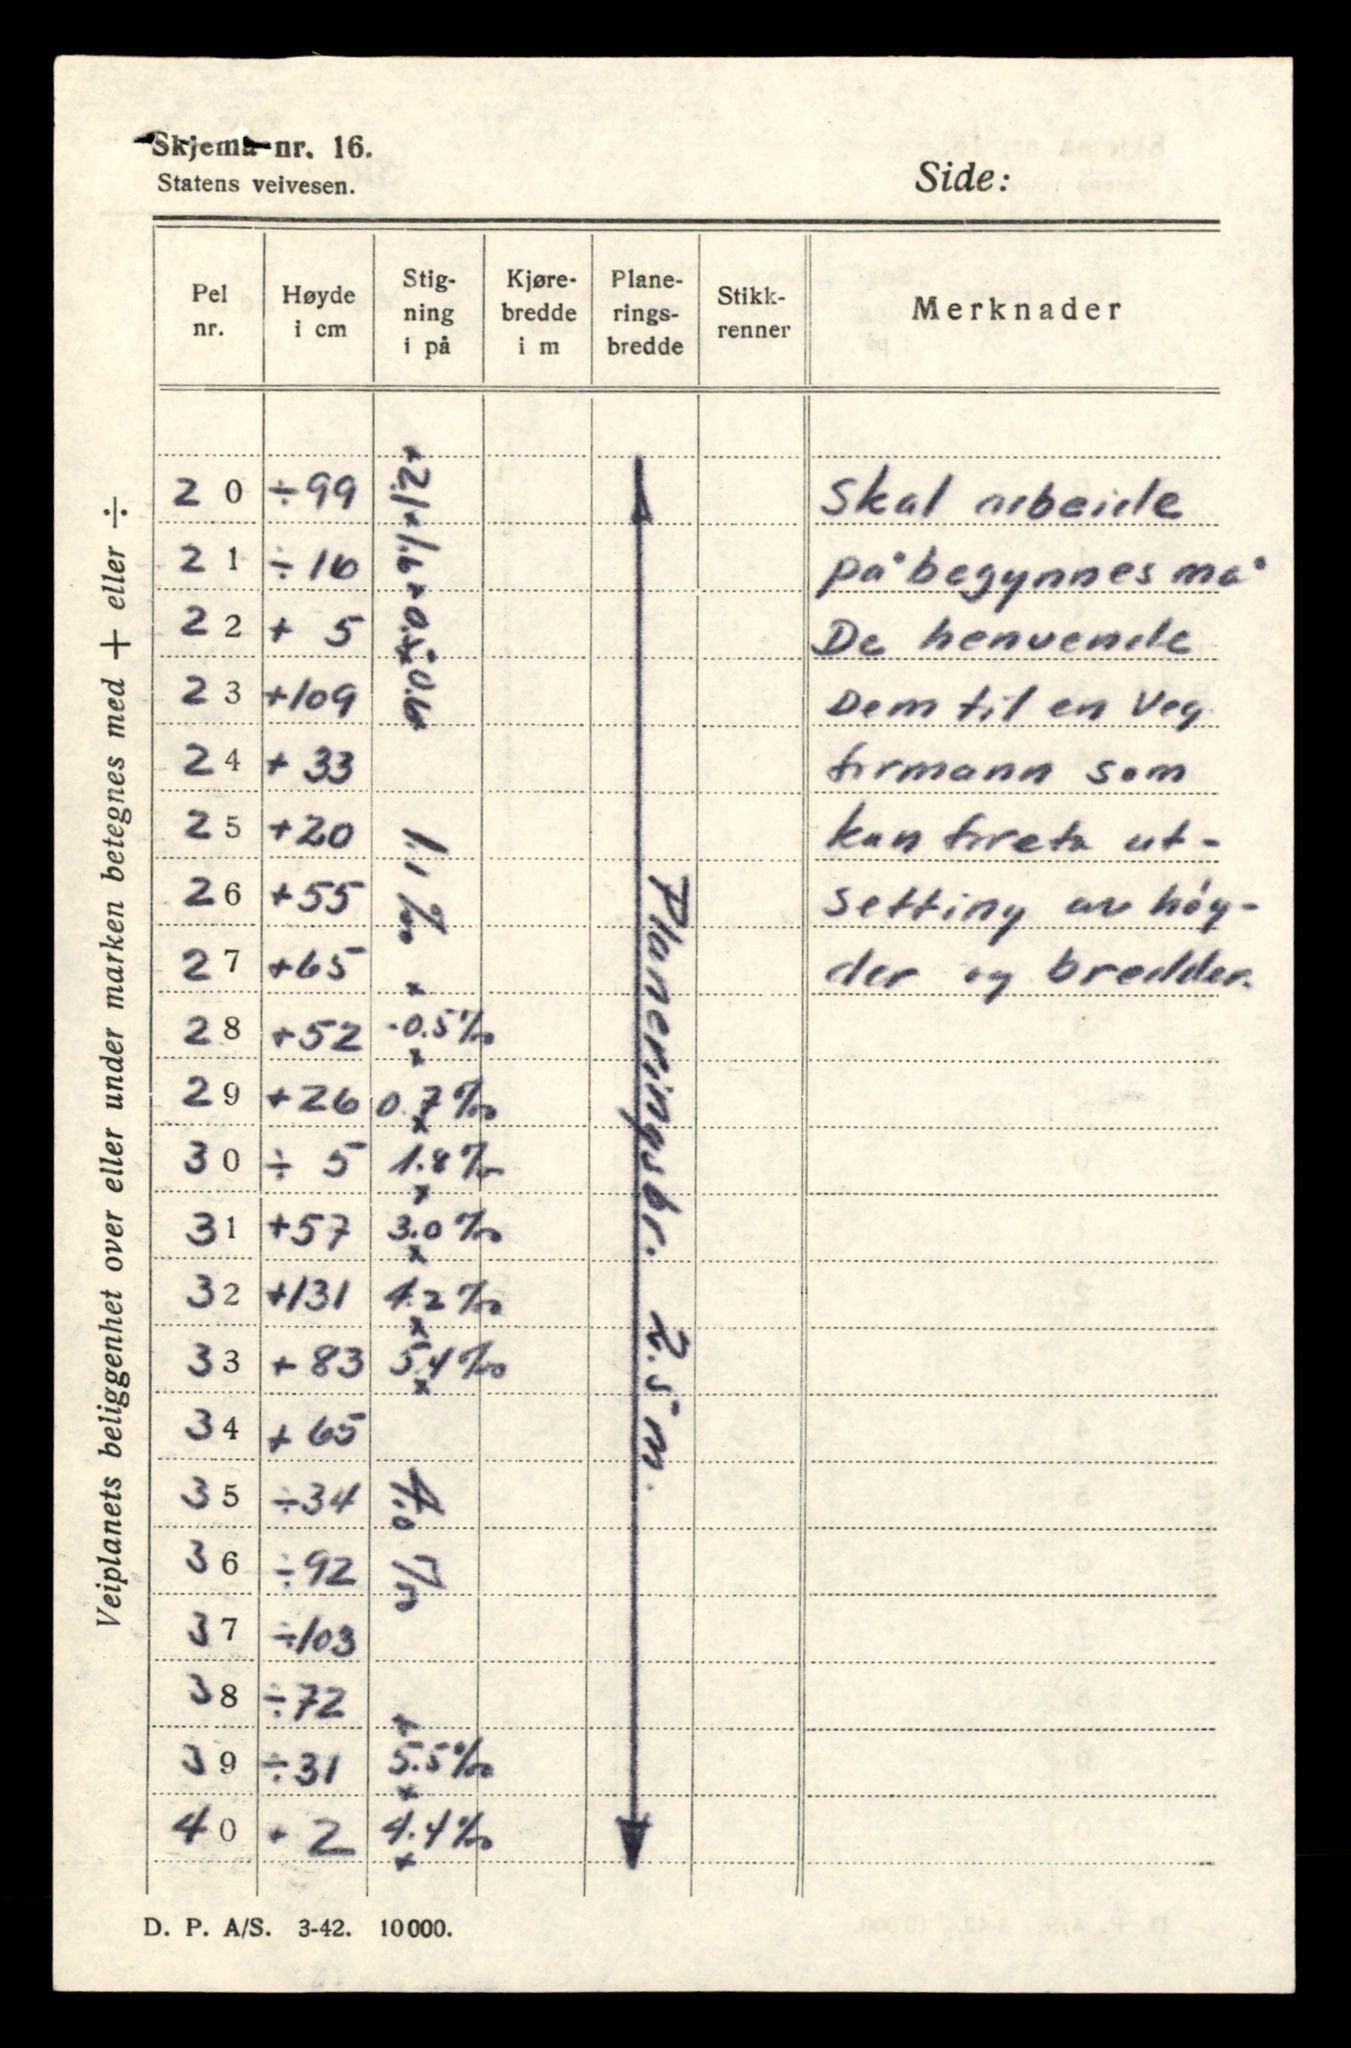 Skjema nr. 16.
Statens veivesen.
Side:
Pel nr. | Høyde i cm | Stigning i på | Kjørebredde i m | Planeringsbredde | Stikkrenner | Merknader
20 ÷99 +2.1 Skal arbeide
21 ÷16 +1.6 påbegynnes må
22 + 5 +0.5 De henvende
23 +109 ÷0.6 Dem til en Veg
24 + 33 formann som
25 +20 1.1 ‰ kan foreta ut-
26 +55 setting av høy-
27 +65 x der og bredder.
28 +52 -0.5‰ x
29 +26 0.7‰ x
30 ÷ 5 1.8‰ x
31 +57 3.0‰ x
32 +131 4.2‰ x
33 + 83 5.4‰ x
34 + 65
35 ÷34 4.0 ‰
36 ÷92
37 ÷103
38 ÷72 x
39 ÷31 5.5‰ x
40 + 2 4.4‰ x
Planeringsbr. 2.5 m.
Veiplanets beliggenhet over eller under marken betegnes med + eller ÷
D. P. A/S. 3-42. 10000.